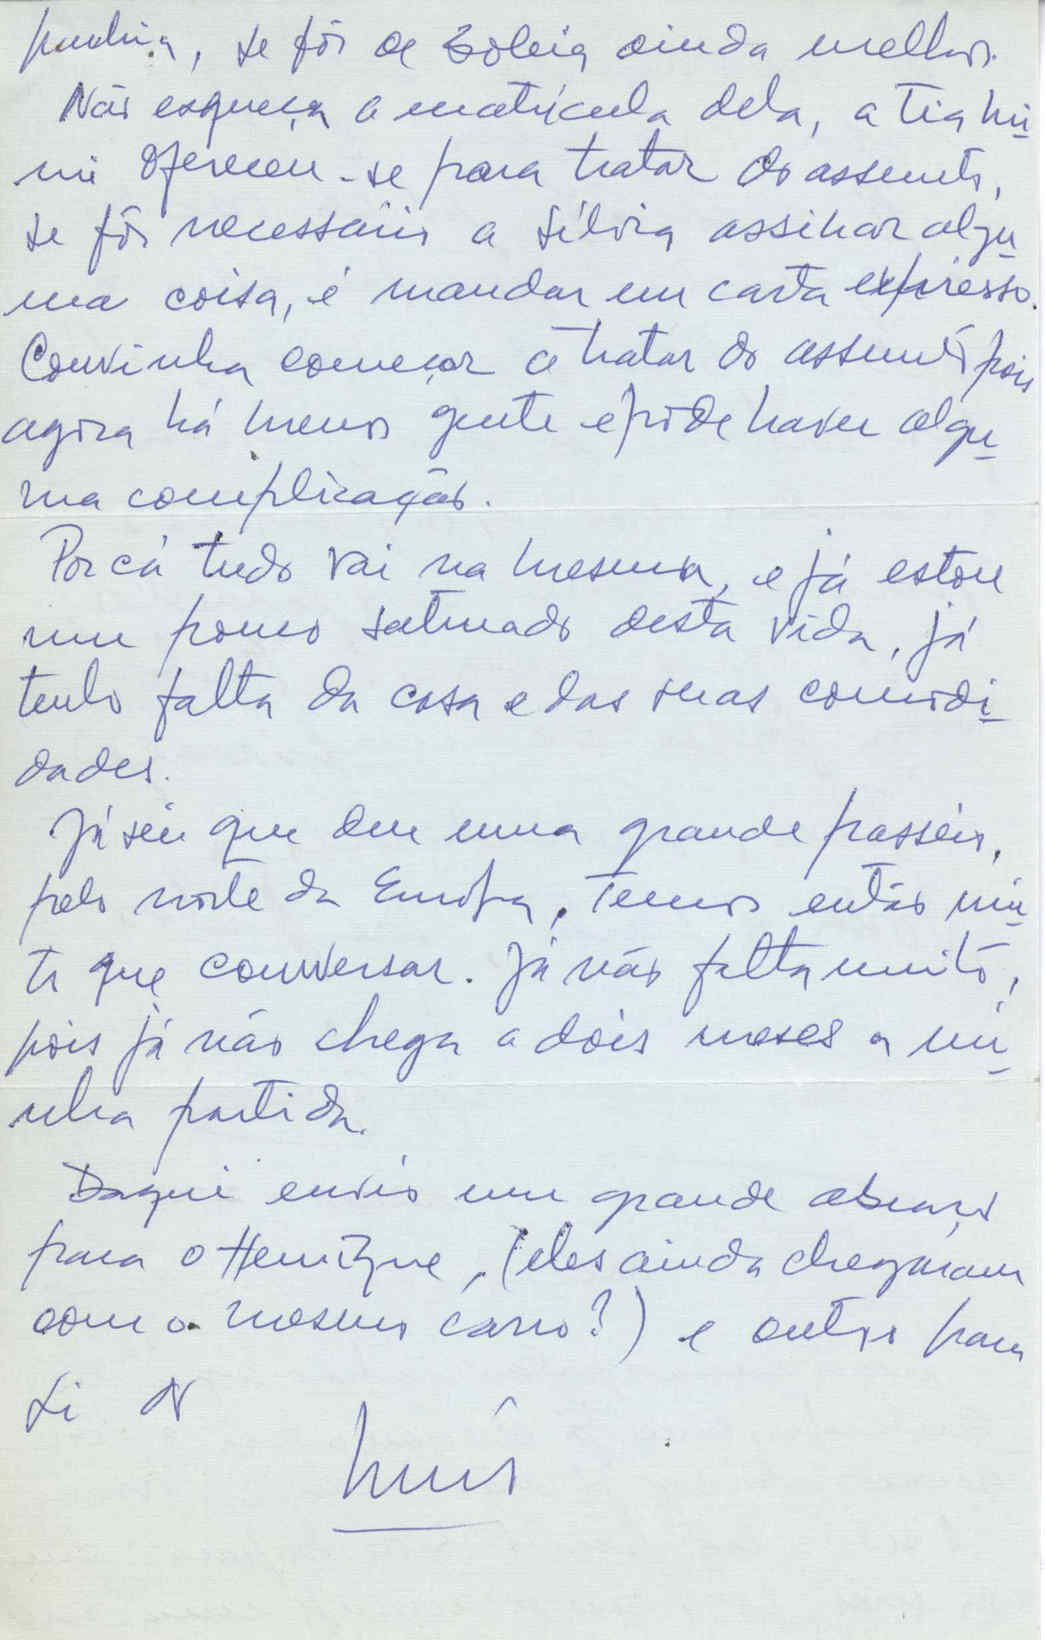 se fôr de boleia ainda melhor.
Não esqueça a matrícula dela, a tia Mi-
mi ofereceu-se para tratar do assunto,
se fôr necessário a Sílvia assinar algu-
ma coisa, é mandar em carta expresso.
Convinha começar a tratar do assunto pois
agora há menos gente e pode haver algu-
ma complicação.
Por cá tudo vai na mesma, e já estou
um pouco saturado desta vida, já
tenho falta da casa e das suas comodi-
dades.
Já sei que deu uma grande passeio,
pelo norte da Europa, temos então mui-
to que conversar. Já não falta muito,
pois já não chega a dois meses a mi-
nha partida.
Daqui envio um grande abraço
para o Henrique, (eles ainda chegaram
com o mesmo carro?) e outro para
Si
Luís